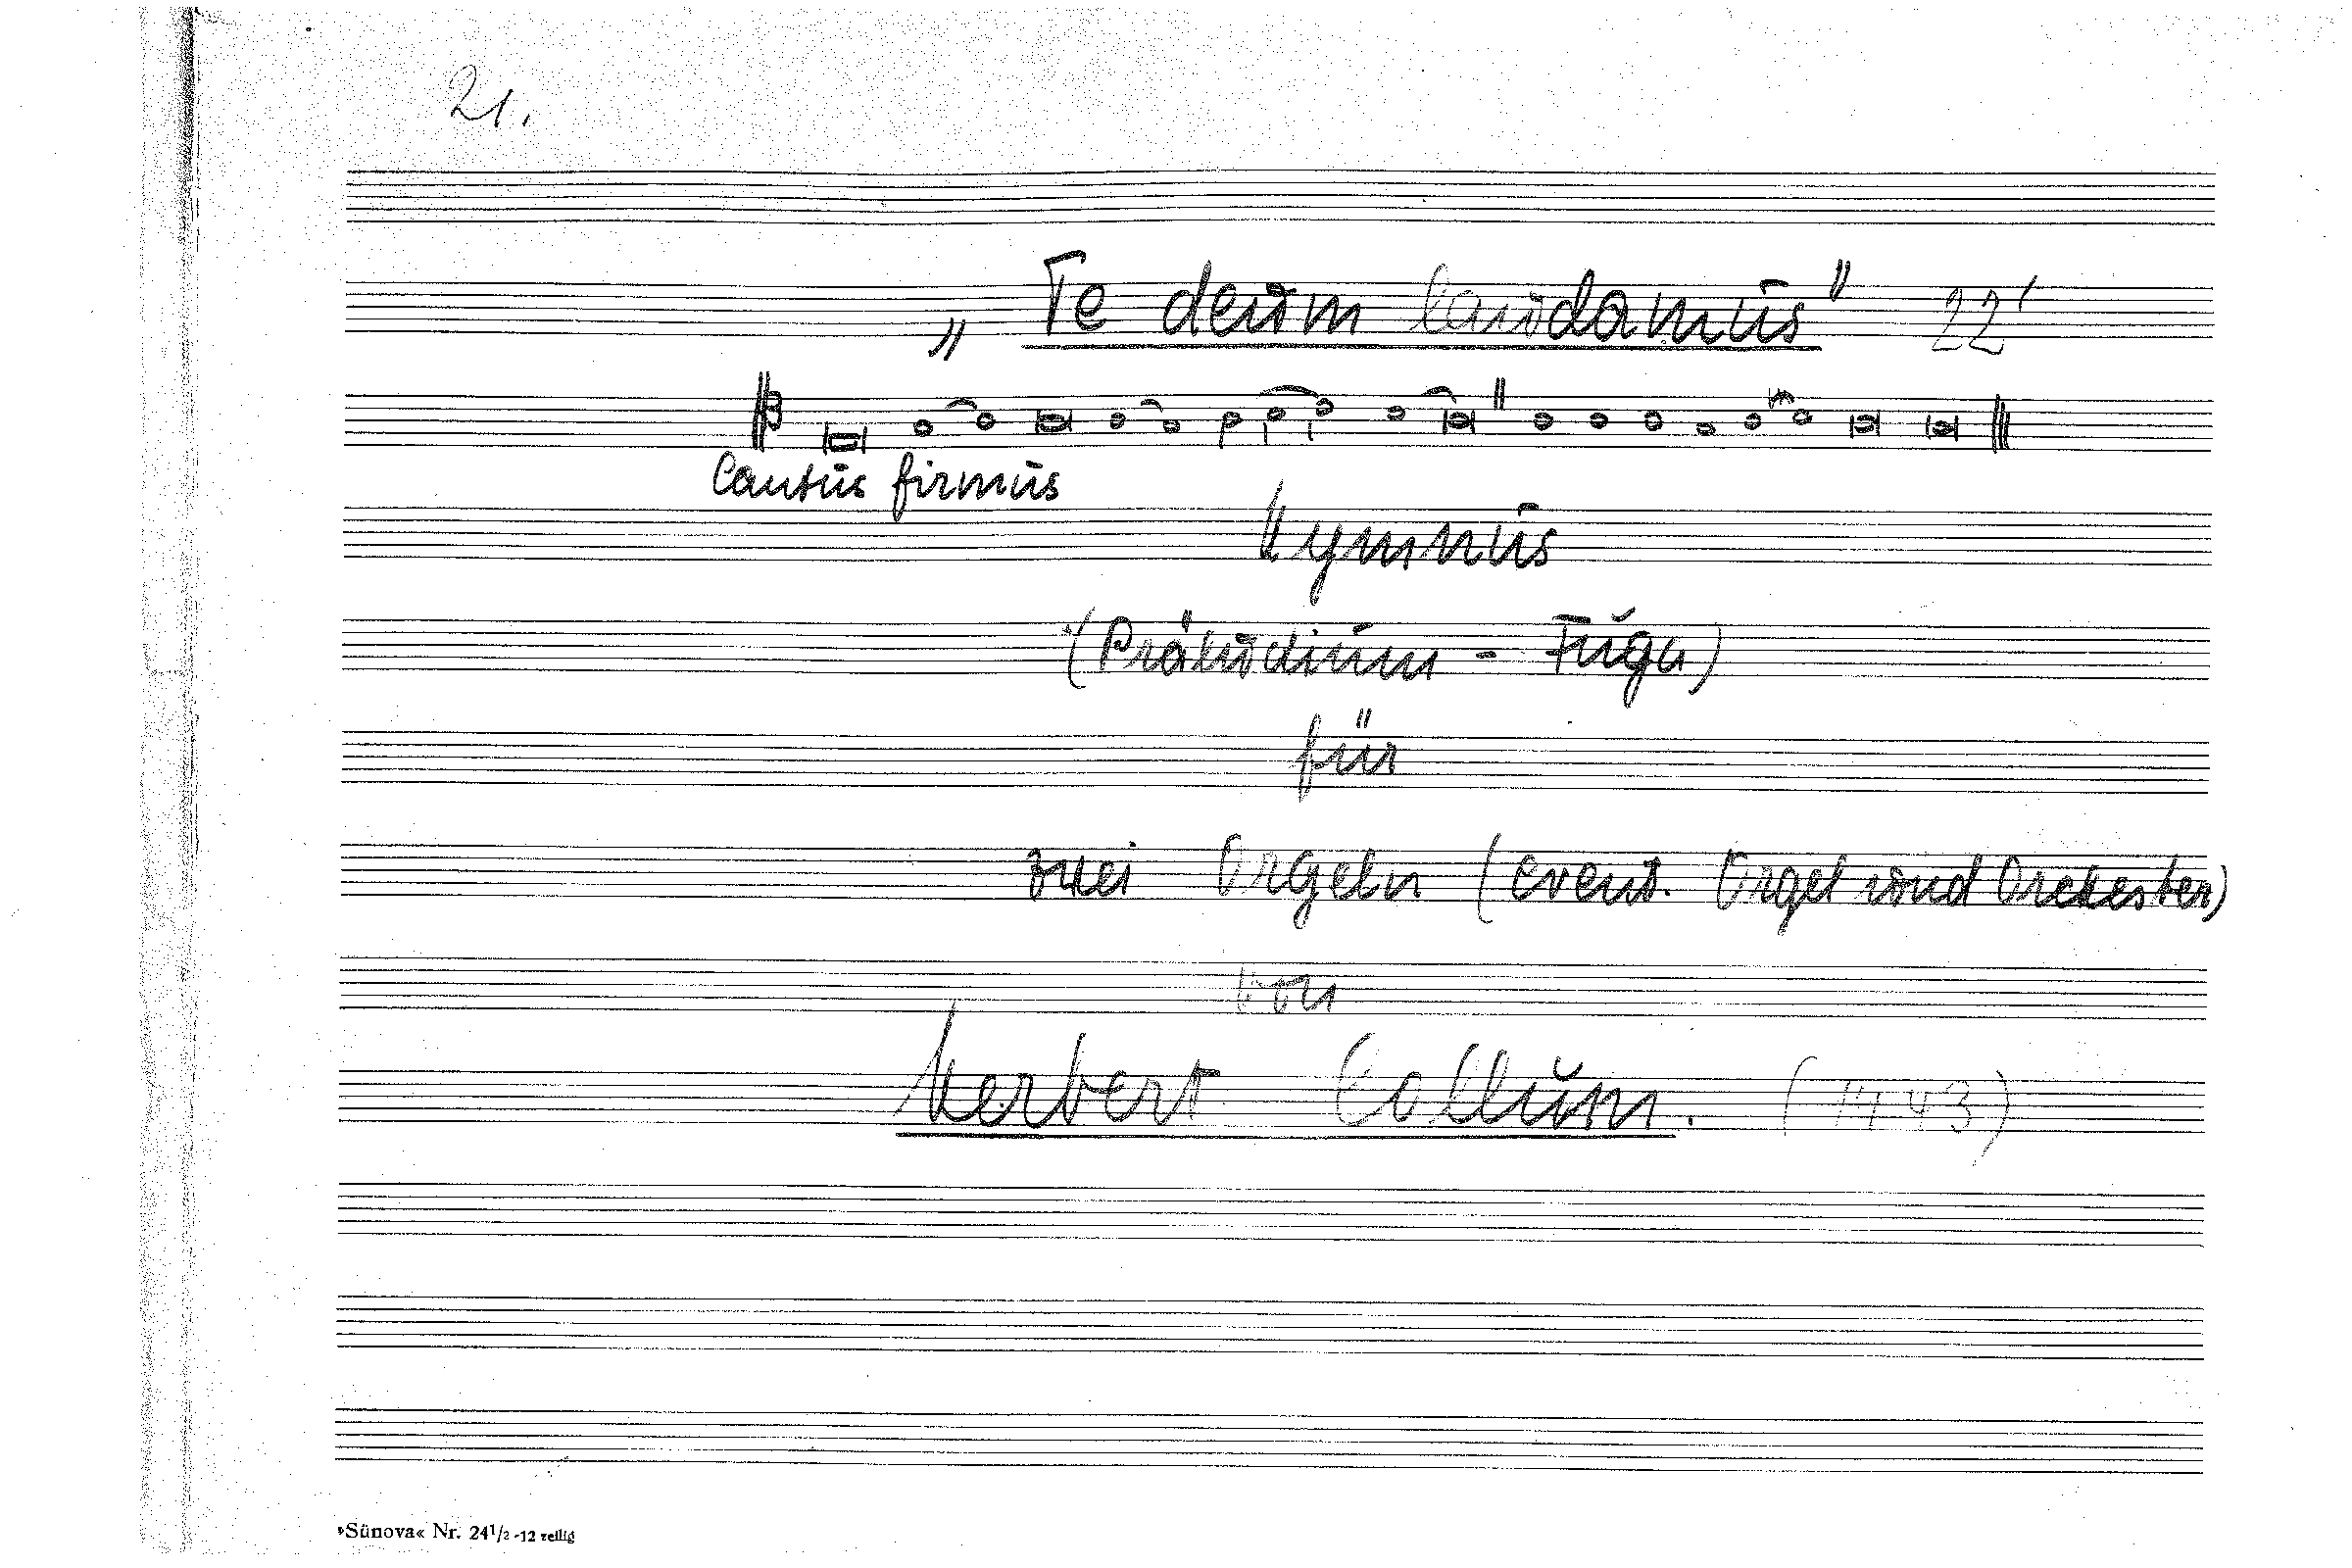 21.
„Te deum laudamus" 22'
Cantus firmus
Hymnus
(Präludium - Fuga)
für
zwei Orgeln (event. Orgel und Orchester)
von
Herbert Collum.
»Sünova« Nr. 24 1/2 -12 zeilig